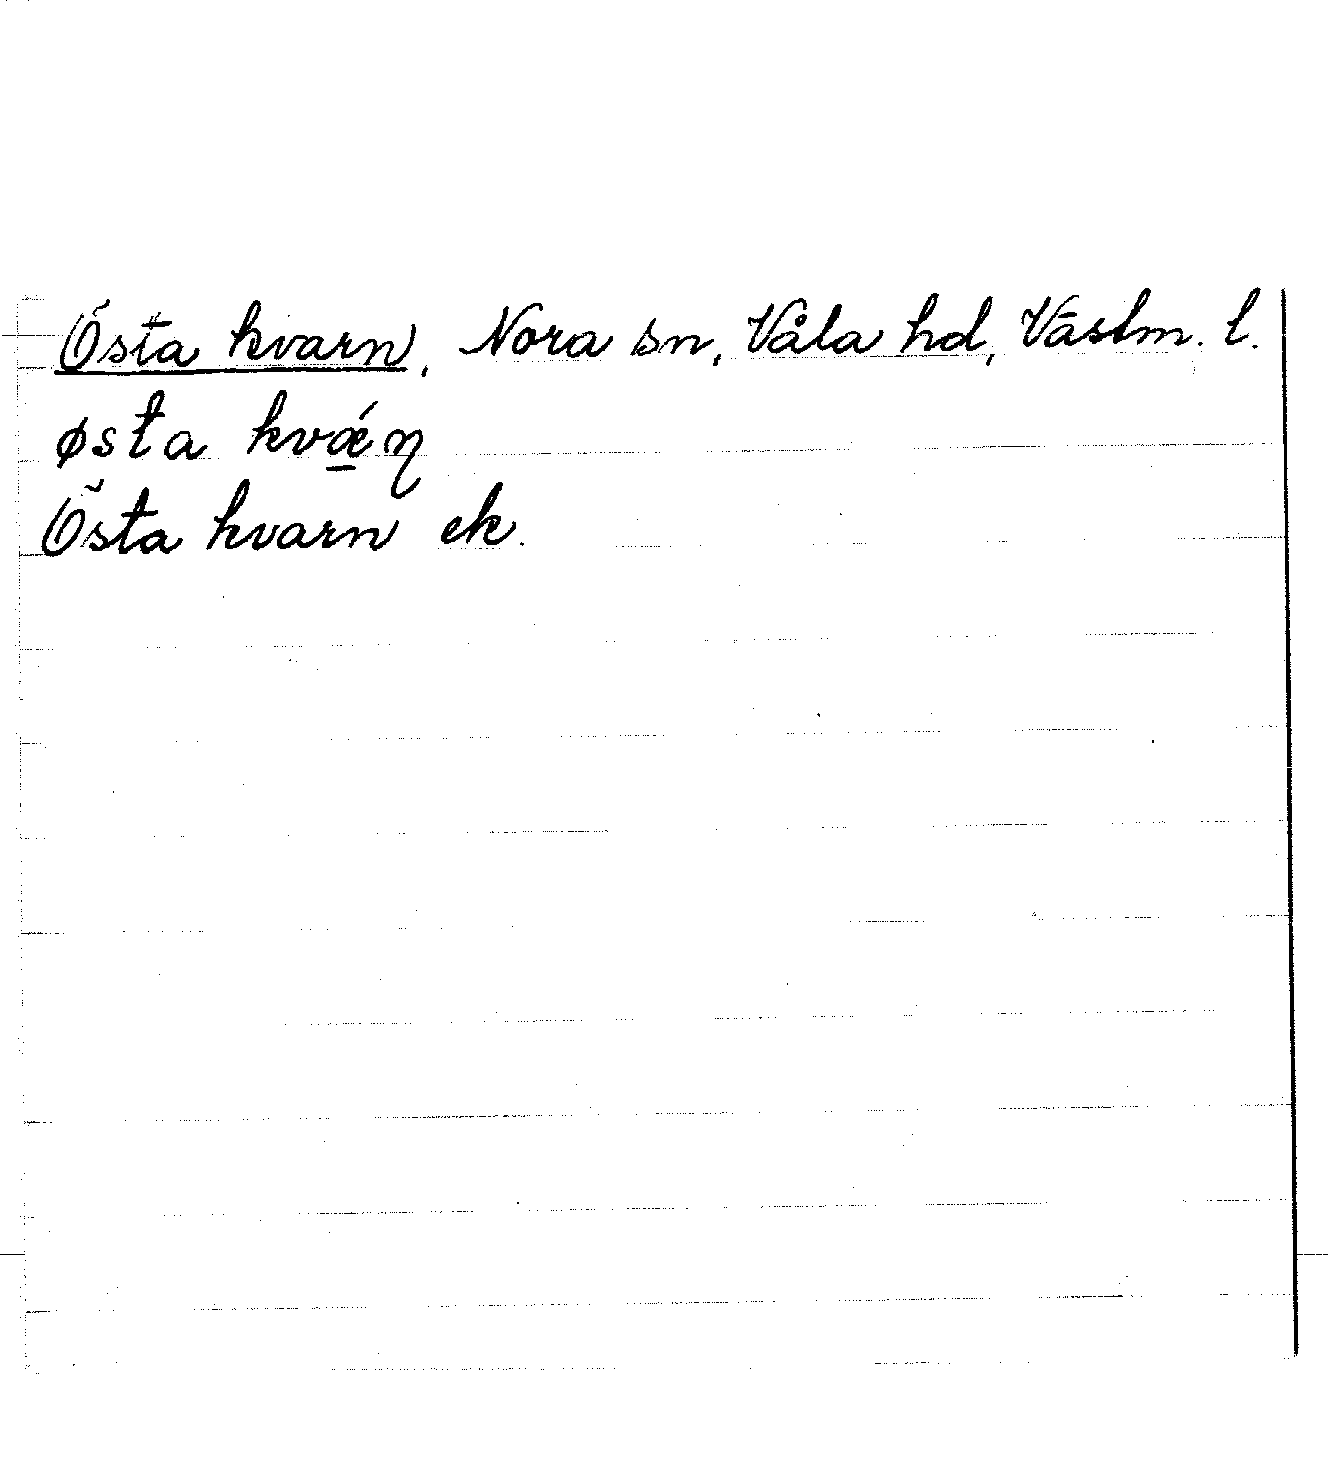 Östa kvarn, Nora sn, Våla hd, Västm. l.
østa kvǽ̱ɳ
Östa kvarn ek.